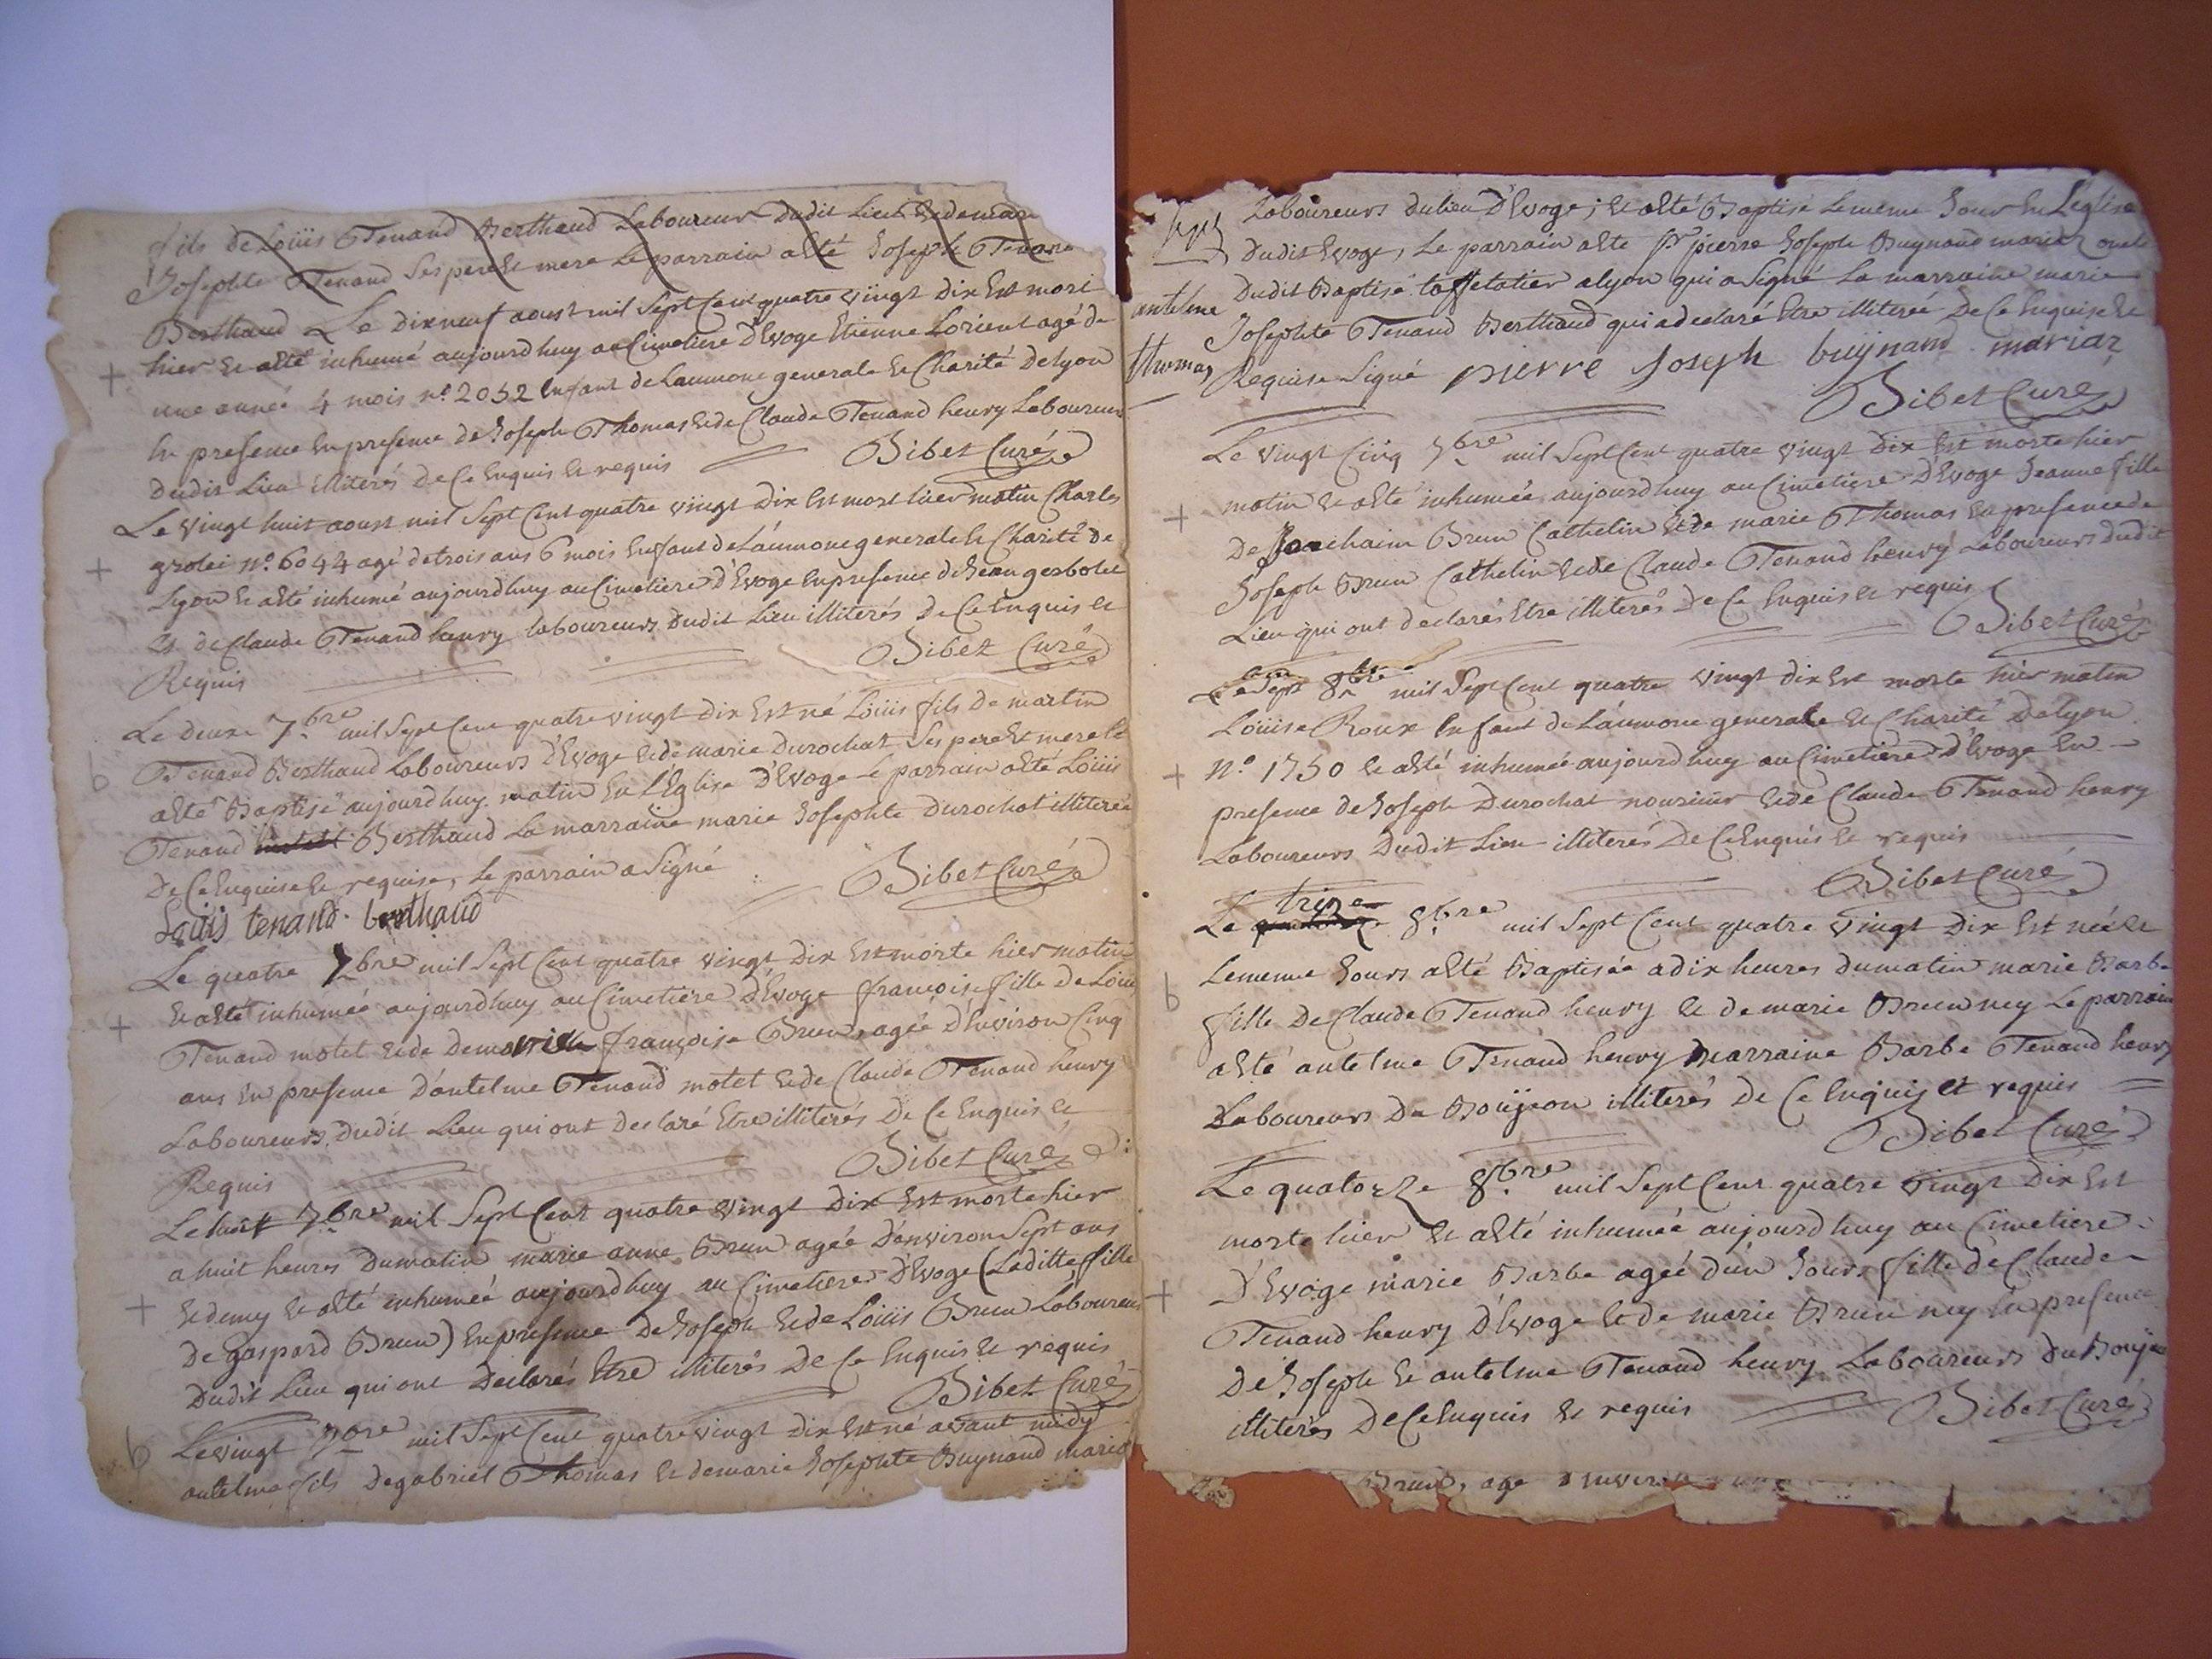 fils de Loüis Tenand Berthaud Laboureur dudit Lieu et de marie
Josephte Tenand ses pere et mere Le parrain a eté Joseph Tenand
Berthaud Le dix neuf aoust mil sept Cent quatre vingt dix est mort
hier et a eté inhumé aujourdhuy au Cimetiere d'Evoge Etienne Lorient agé de
une année 4 mois n.º 2052 Enfant de Laumone generale et Charité de Lyon
En presence En presence de Joseph Thomas et de Claude Tenand henry Laboureurs
dudit Lieu illiterés de Ce Enquis et requis
Bibet Curé
Le vingt huit aoust mil sept Cent quatre vingt dix est mort hier matin Charles
grolei n.º 6044 agé de trois ans 6 mois Enfant de L'aumone generale et Charité de
Lyon et a eté inhumé aujourdhuy au Cimetiere d'Evoge En presence de Jean gerbolet
et de Claude Tenand henry laboureurs dudit Lieu illiterés de Ce Enquis et
Requis
Bibet Curé
Le deux 7.bre mil sept Cent quatre vingt dix est né Loüis fils de martin
Tenand Berthaud Laboureurs d'Evoge et de marie Durochat ses pere et mere et
a eté Baptisé aujourdhuy matin En L'Eglise d'Evoge Le parrain a eté Loüis
Tenand Berthaud La marraine marie Josephte Durochat illiterée
de Ce Enquise et requise, Le parrain a signé
Bibet Curé
Loüis tenand berthaud
Le quatre 7bre mil sept Cent quatre vingt dix est morte hier matin
et a eté inhumée aujourdhuy au Cimetiere d'Evoge françoise fille de Loüis
Tenand motet et de demarie françoise Brun, agée d'Environ Cinq
ans En presence d'antelme Tenand motet et de Claude Tenand henry
Laboureurs dudit Lieu qui ont declaré Etre illiterés de Ce Enquis et
Requis
Bibet Curé
Le huit 7.bre mil sept Cent quatre vingt dix est morte hier
a huit heures du matin marie anne Brun agée d'environ sept ans
et demy et a eté inhumée aujourdhuy au Cimetiere d'Evoge (Laditte fille
de gaspard Brun) En presence de Joseph et de Loüis Brun Laboureurs
dudit Lieu qui ont declarés Etre illiterés de Ce Enquis et requis
Bibet Curé
b Le vingt 7bre mil sept Cent quatre vingt dix est né avant midy
antelme fils de gabriel Thomas et de marie Josephte Buynand mariaz
Laboureurs du lieu d'Evoge; et a eté Baptisé Le meme Jour En L'eglise
dudit Evoge, Le parrain a eté Sr pierre Joseph Buynand mariaz oncle
antelme dudit Baptisé taffetatier a lyon qui a signé La marraine marie
Josephte Tenand Berthaud qui a declaré Etre illiterée de Ce Enquise et
thomas Requise signé pierre Joseph buijnand mariaz
Bibet Curé
Le vingt Cinq 7bre mil sept Cent quatre vingt dix est morte hier
matin et a eté inhumée aujourdhuy au Cimetiere d'Evoge Jeanne fille
de Joachaim Brun Cathelin et de marie Thomas En presence de
Joseph Brun Cathelin et de Claude Tenand henry Laboureurs dudit
Lieu qui ont declarés Etre illiterés de Ce Enquis et requis
Bibet Curé
Le sept 8bre mil sept Cent quatre vingt dix est morte hier matin
Loüise Roux Enfant de L'aumone generale et Charité de Lyon
N.º 1750 et a eté inhumée aujourdhuy au Cimetiere d'Evoge En
presence de Joseph Durochat et de Claude Tenand henry
Laboureurs dudit Lieu illiterés de Ce Enquis et requis
Bibet Curé
Le trize 8bre mil sept Cent quatre vingt dix est née et
b Le meme Jours a eté Baptisée a dix heures du matin marie Barbe
fille de Claude Tenand henry et de marie Brun ney Le parrain
a eté antelme Tenand henry marraine Barbe Tenand henry
Laboureurs du Boujeon illiterés de Ce Enquis et requis
Bibet Curé
Le quatorze 8bre mil sept Cent quatre vingt dix est
morte hier et a eté inhumée aujourdhuy au Cimetiere
d'Evoge marie Barbe agée d'un Jours fille de Claude
Tenand henry d'Evoge et de marie Brun ney En presence
de Joseph et antelme Tenand henry Laboureurs du Boujeon
illiterés de Ce Enquis et requis
Bibet Curé
Brun, agé d'Environ